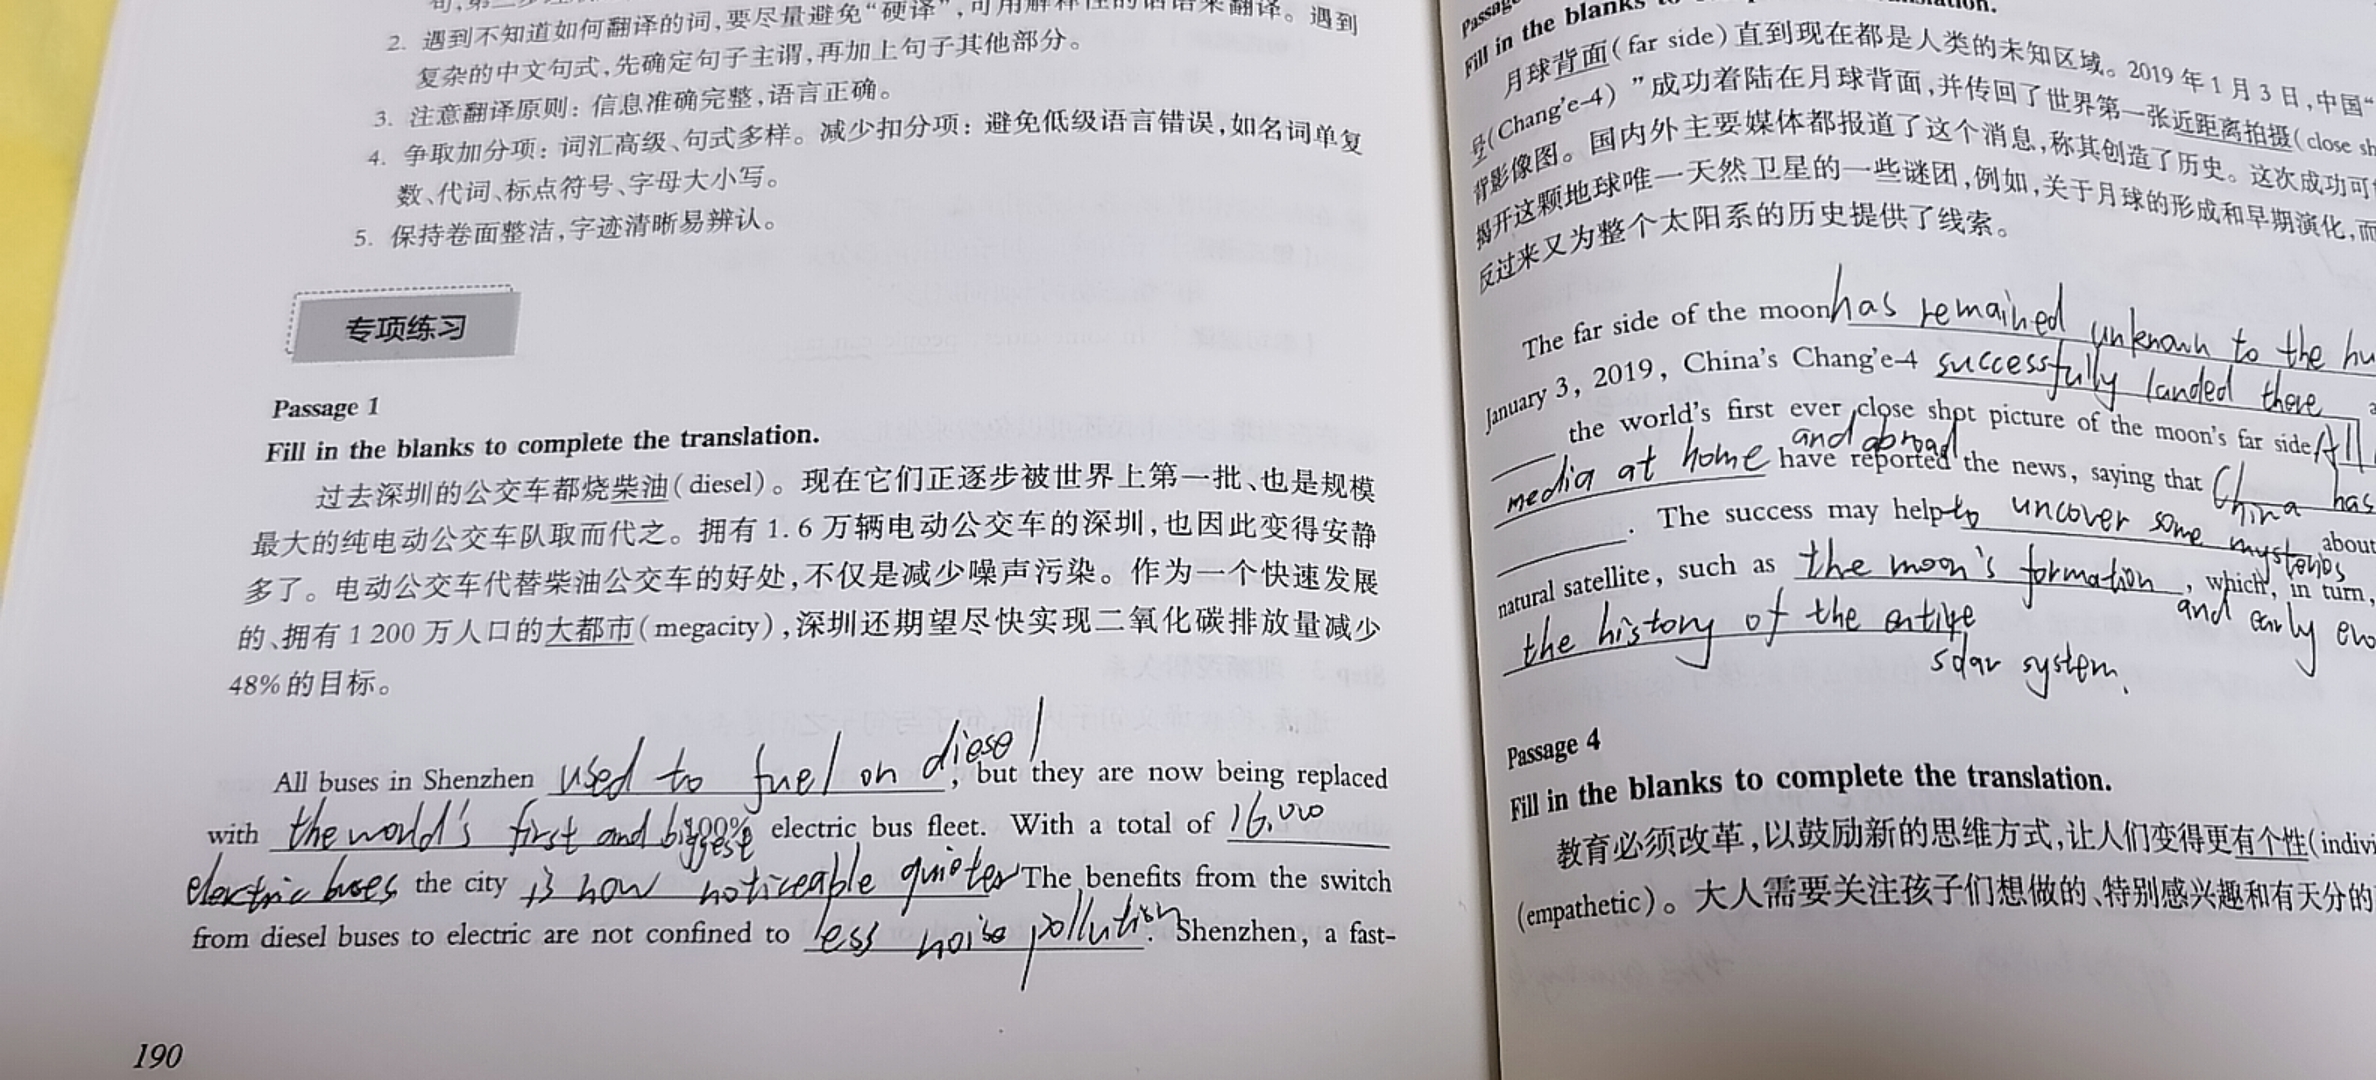 2. 遇到不知道如何翻译的词,要尽量避免“硬译”,可用解释性的话语来翻译。遇到
复杂的中文句式,先确定句子主谓,再加上句子其他部分。
3. 注意翻译原则：信息准确完整,语言正确。
4. 争取加分项：词汇高级、句式多样。减少扣分项：避免低级语言错误,如名词单复
数、代词、标点符号、字母大小写。
5. 保持卷面整洁,字迹清晰易辨认。
专项练习
Passage 1
Fill in the blanks to complete the translation.
过去深圳的公交车都烧柴油(diesel)。现在它们正逐步被世界上第一批、也是规模
最大的纯电动公交车队取而代之。拥有 1.6 万辆电动公交车的深圳,也因此变得安静
多了。电动公交车代替柴油公交车的好处,不仅是减少噪声污染。作为一个快速发展
的、拥有 1 200 万人口的大都市(megacity),深圳还期望尽快实现二氧化碳排放量减少
48%的目标。
All buses in Shenzhen used to fuel on diesel, but they are now being replaced
with the world's first and biggest 100% electric bus fleet. With a total of 16,000
electric buses the city is now noticeable quieter The benefits from the switch
from diesel buses to electric are not confined to less noise pollution. Shenzhen, a fast-
190
Passage
Fill in the blanks
月球背面(far side)直到现在都是人类的未知区域。2019 年 1 月 3 日,中国“
号(Chang'e-4)”成功着陆在月球背面,并传回了世界第一张近距离拍摄(close sh
背影像图。国内外主要媒体都报道了这个消息,称其创造了历史。这次成功可
揭开这颗地球唯一天然卫星的一些谜团,例如,关于月球的形成和早期演化,而
反过来又为整个太阳系的历史提供了线索。
The far side of the moon has remained unknown to the hu
January 3, 2019, China's Chang'e-4 successfully landed there
the world's first ever close shot picture of the moon's far side All
media at home and abroad have reported the news, saying that China has
. The success may help to uncover some mysteries about
natural satellite, such as the moon's formation and early evo, which, in turn,
the history of the entire solar system.
Passage 4
Fill in the blanks to complete the translation.
教育必须改革,以鼓励新的思维方式,让人们变得更有个性(indivi
(empathetic)。大人需要关注孩子们想做的、特别感兴趣和有天分的